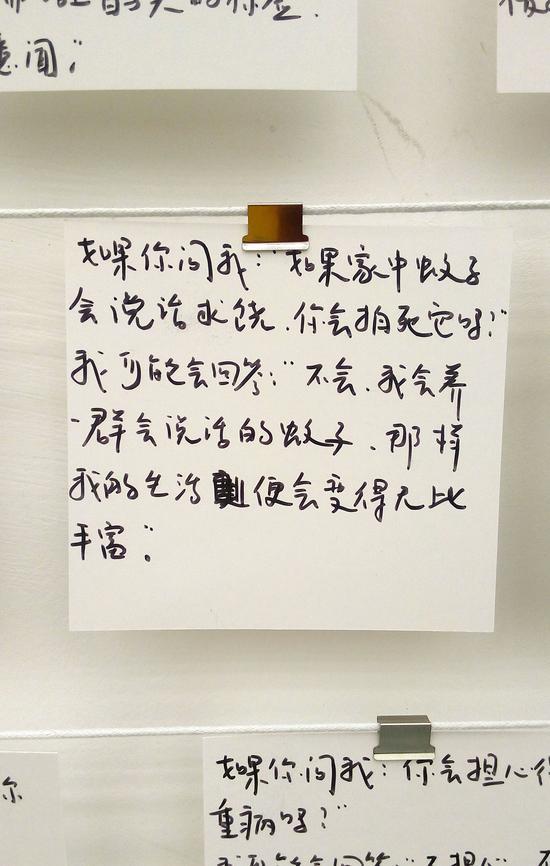 意闻”
如果你问我：“如果家中蚊子
会说话求饶，你会拍死它吗？”
我可能会回答：“不会，我会养
一群会说话的蚊子，那样
我的生活便会变得无比
丰富。”
你
如果你问我：你会担心得
重病吗？”